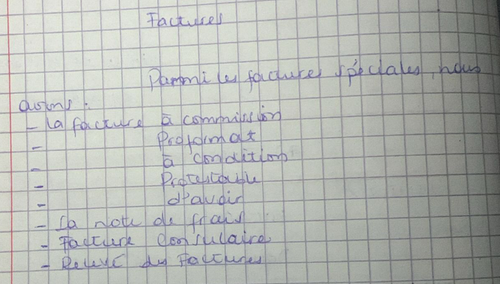 Factures
Parmi les factures spéciales, nous
avons :
- La facture à commission
- Proformat
- à condition
- Protestable
- d'avoir
- La note de frais
- Facture Consulaire
- Relevé des Factures